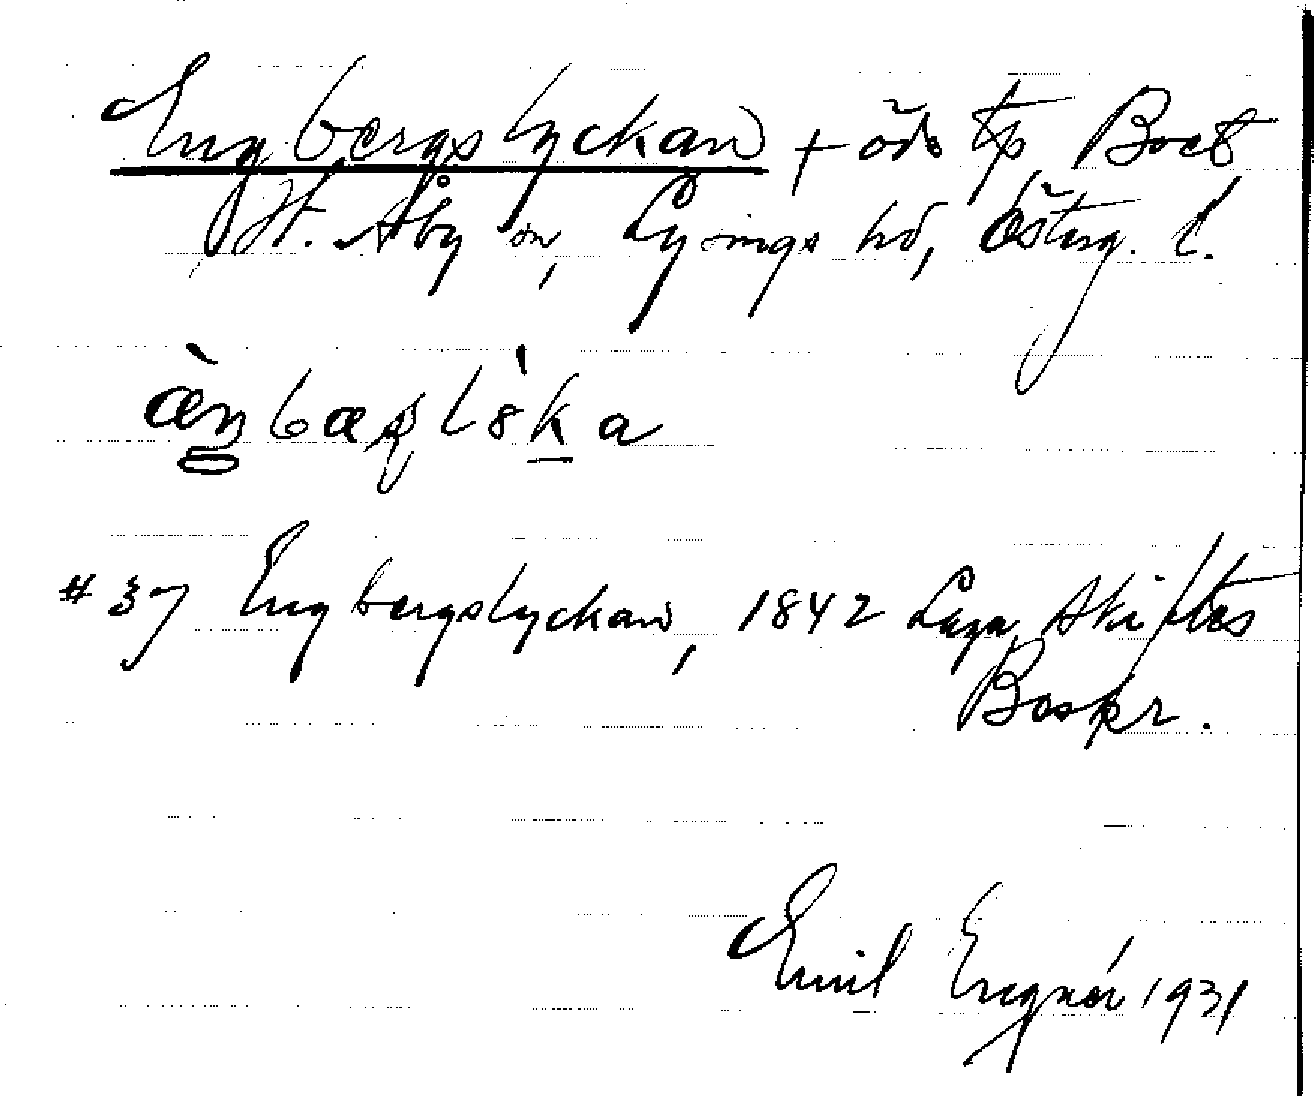 Engbergslyckan + öde tp, Boet
St. Åby sn, Lysings hd, Österg. l.
# 37 Engbergslyckan, 1842 Laga Skiftes
Beskr.
Emil Engnér 1931